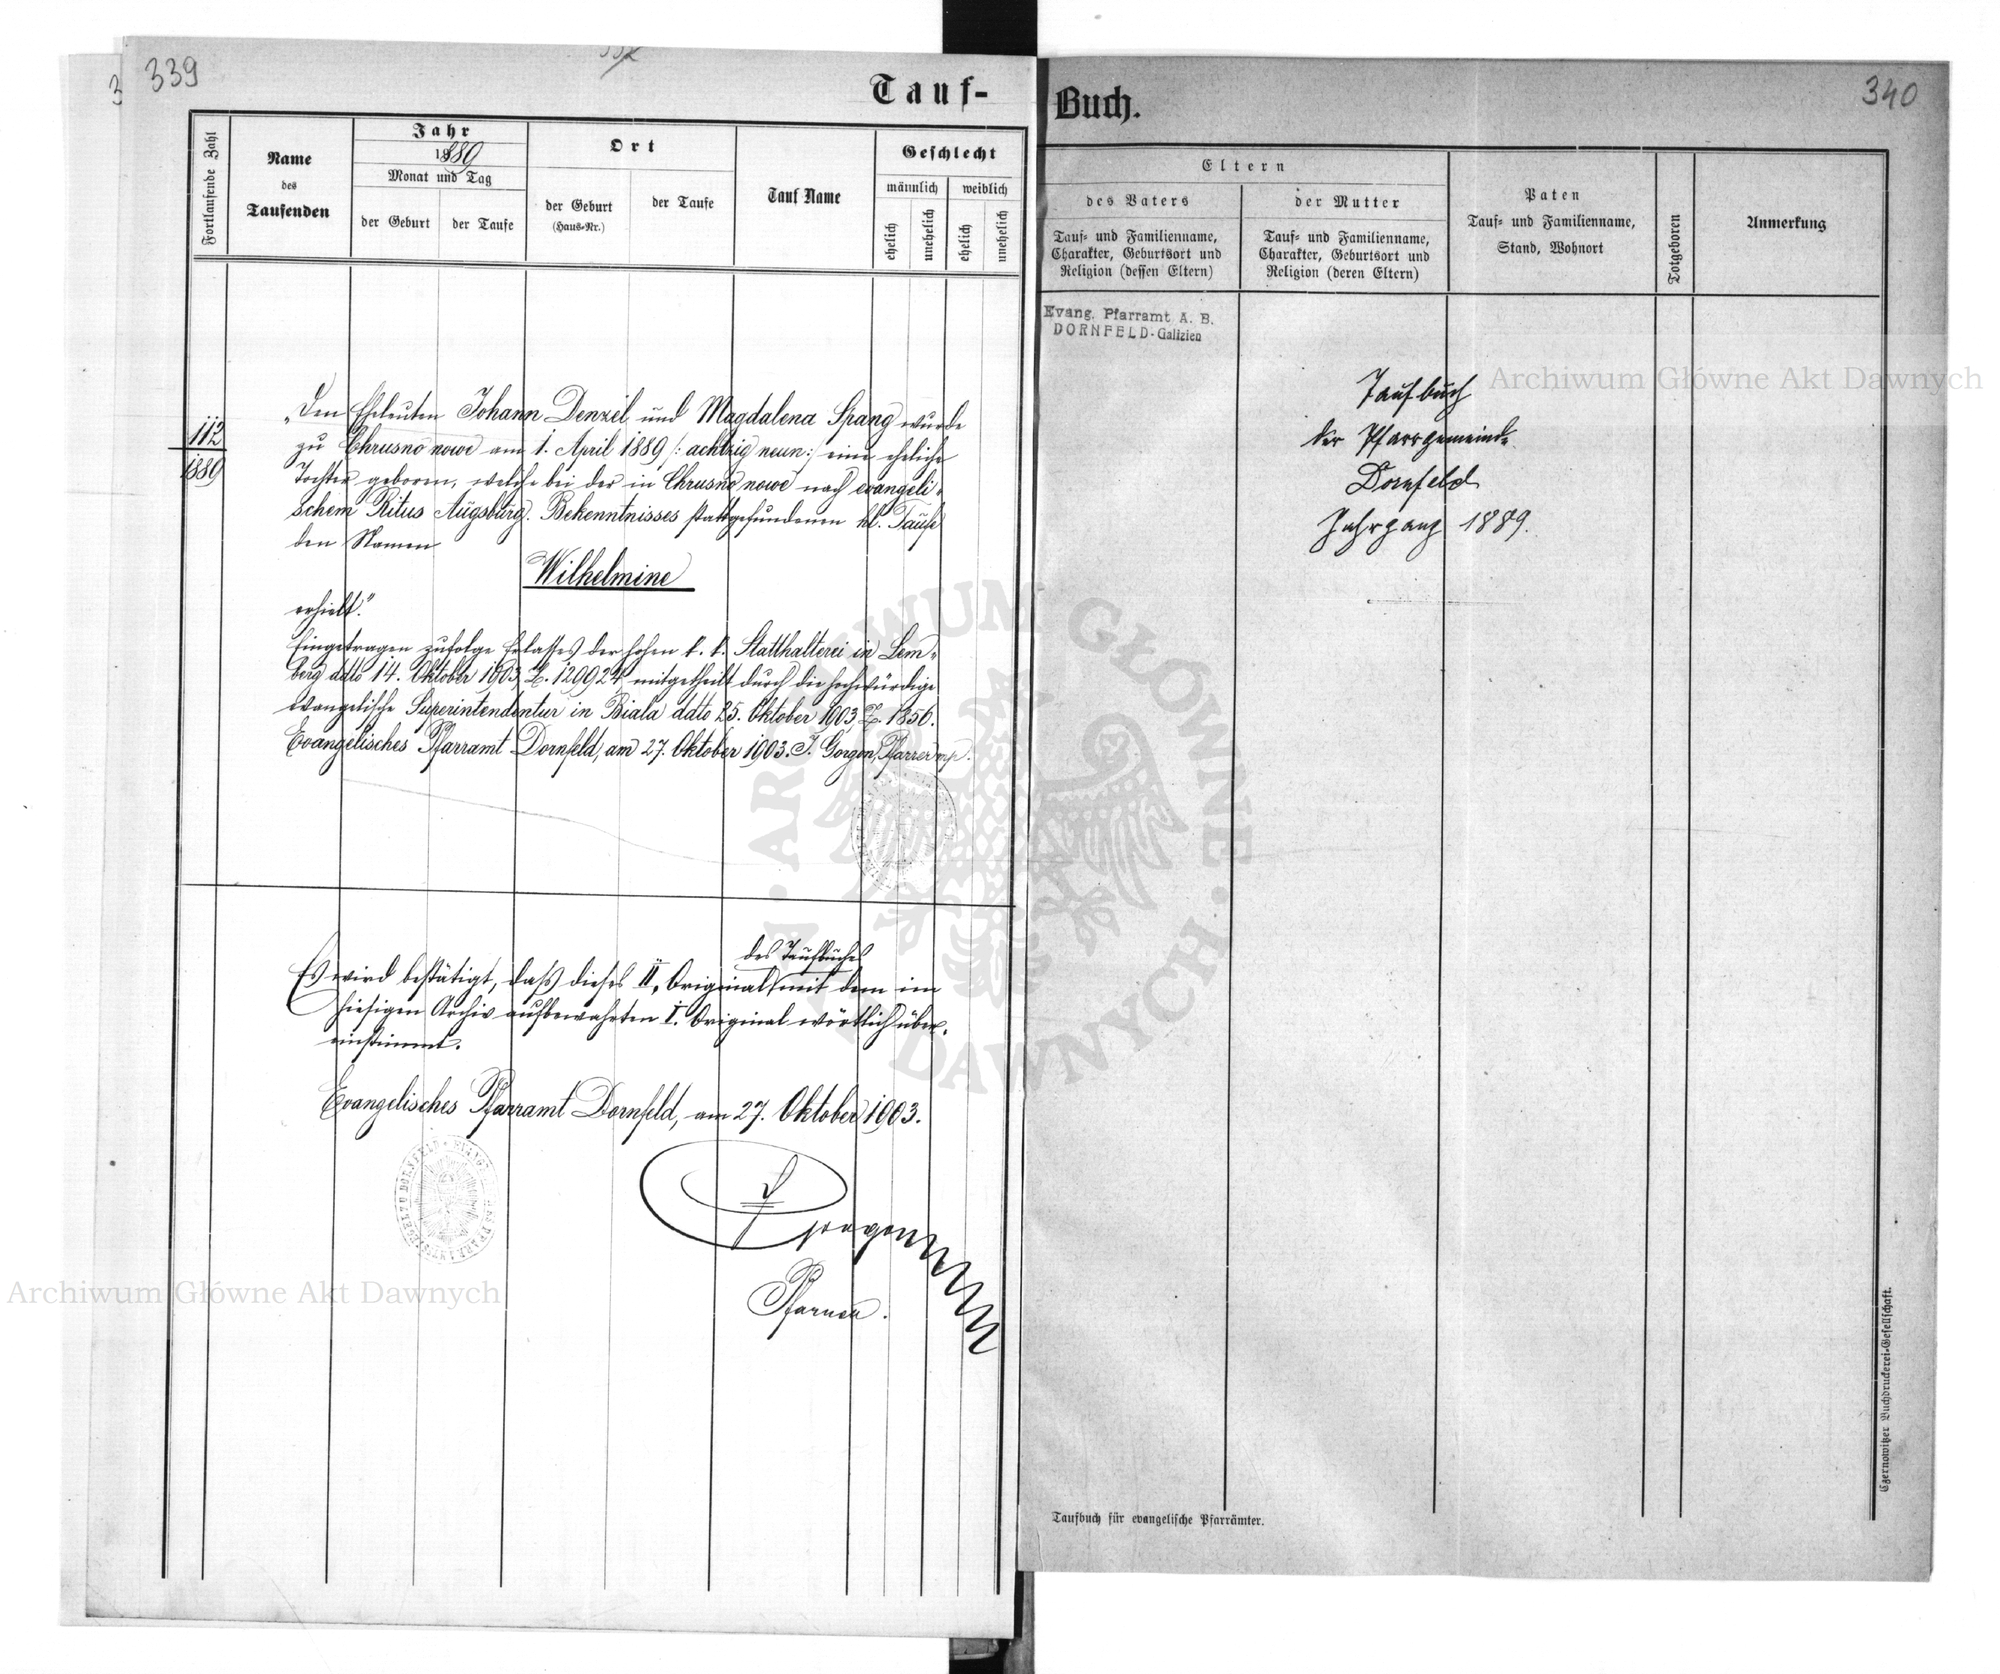 339
Tauf-
Fortlaufende Zahl
Name
des
Taufenden
Jahr
1889
Monat und Tag
der Geburt
der Taufe
Ort
der Geburt
(Haus-Nr.)
der Taufe
Tauf Name
Geschlecht
männlich
weiblich
ehelich
unehelich
ehelich
unehelich
112
1889
„Den Eheleuten Johann Denzel und Magdalena Spang wurde
zu Chrusno nowe am 1. April 1889 /: achtzig neun :/ eine eheliche
Tochter geboren, welche bei der in Chrusno nowe nach evangeli-
schem Ritus Augsburg. Bekenntnisses stattgefundenen hl. Taufe
den Namen
Wilhelmine
erhielt."
Eingetragen zufolge Erlasses der hohen k. k. Statthalterei in Lem-
berg ddto 14. Oktober 1903, Z. 129924 mitgetheilt durch die hochwürdige
evangelische Superintendentur in Biala ddto 25. Oktober 1903, Z. 1856.
Evangelisches Pfarramt Dornfeld, am 27. Oktober 1903. J. Gorgon, Pfarrer mp.
des Taufbuches
Es wird bestätigt, daß dieses II. Original mit dem im
hiesigen Archiv aufbewahrten I. Original wörtlich über-
einstimmt.
Evangelisches Pfarramt Dornfeld, am 27. Oktober 1903.
J Gorgon
Pfarrer.
340
Buch.
Eltern
des Vaters
Tauf- und Familienname,
Charakter, Geburtsort und
Religion (dessen Eltern)
der Mutter
Tauf- und Familienname,
Charakter, Geburtsort und
Religion (deren Eltern)
Paten
Tauf- und Familienname,
Stand, Wohnort
Totgeboren
Anmerkung
Evang. Pfarramt A. B.
DORNFELD-Galizien
Taufbuch
der Pfarrgemeinde
Dornfeld
Jahrgang 1889.
Taufbuch für evangelische Pfarrämter.
Czernowitzer Buchdruckerei-Gesellschaft.
Archiwum Główne Akt Dawnych
Archiwum Główne Akt Dawnych
ARCHIWUM GŁÓWNE AKT DAWNYCH